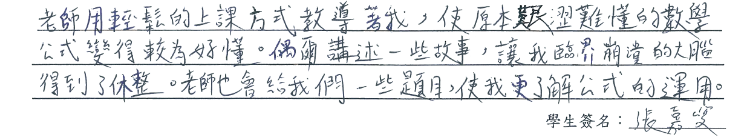 老師用輕鬆的上課方式教導著我，使原本艱澀難懂的數學
公式變得較為好懂。偶爾講述一些故事，讓我臨界崩潰的大腦
得到了休整。老師也會給我們一些題目，使我更了解公式的運用。
學生簽名：張嘉